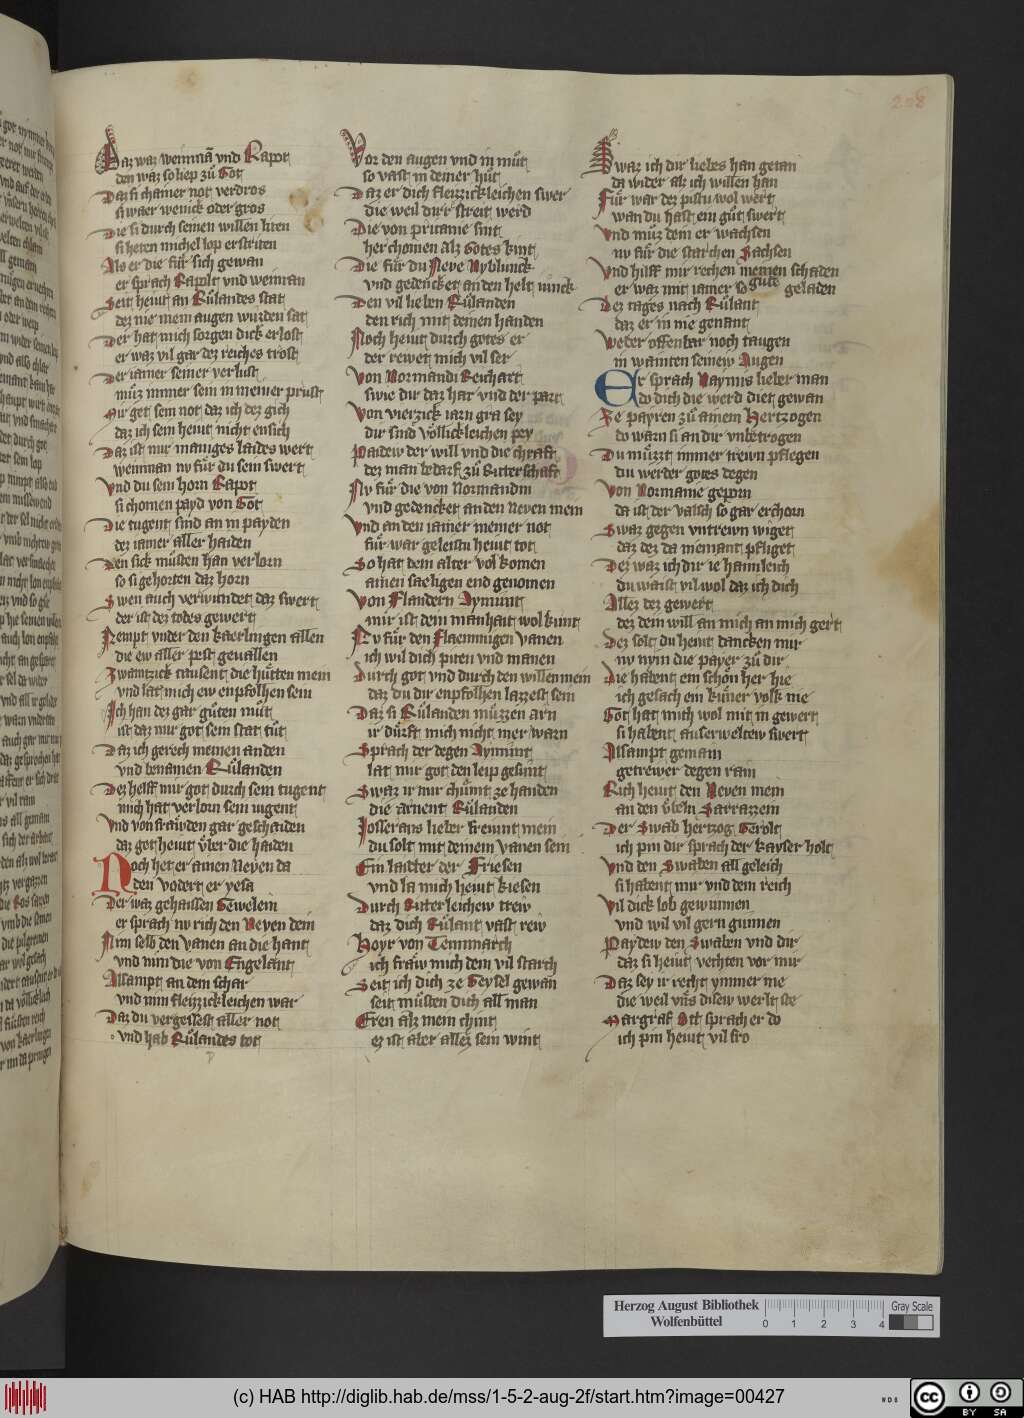 208
Daz waz weimnā vnd Rapot
den waz so liep zů Got
Daz si chainer not verdros
si waer wenick oder gros
Die si durch seinen willen liten
si heten michel lop erstriten
Als er die für sich gewan
er sprach Rapolt vnd weiman
Seit hewt an Růlandes stat
dez nie mein augen wurden sat
Der hat mich sorgen dick erlost
er waz vil gar dez reiches trost
Der iamer seiner verlust
můz immer sein in meiner prust
Mir get sein not daz ich dez gich
daz ich sein hewt nicht ensich
Daz ist mir maniges laides wert
weiman nv für du sein swert
Vnd du sein horn Rapot
si chomen payd von Got
Die tugent sind an in payden
dez iamer aller haiden
Den sick můsten han verlorn
so si gehorten daz horn
Swen auch verwundet daz swert
der ist dez todes gewert
Kempt vnder den kaerlingen allen
die ew aller pest geuallen
Zwaintzick tausent die hůtten mein
vnd lat mich ew enpfolhen sein
Ich han dez gar gůten můt
ist daz mir got sein stat tůt
Daz ich gerech meinen anden
vnd benamen Růlanden
Dez helff mir got durch sein tugent
mich hat verlorn sein iugent
Vnd von frawden gar geschaiden
daz got hewt vber die haiden
Noch het er ainen Neuen da
den vodert er yesa
Der waz gehaissen Gewelein
er sprach nv rich den Neuen dein
Nim selb den vanen an die hant
vnd nim die von Engelant
Allsampt an dem schar
vnd nim fleizzickleichen war
Daz du vergessest aller not
vnd hab Růlandes tot
Vor den augen vnd in můt
so vast in deiner hůt
Daz er dich fleizzickleichen swer
die weil dirr streit werd
Die von pritanie sint
her chomen alz Gotes kint
Die für du Neue Nyblunck
vnd gedencket an den helt iunck
Den vil lieben Růlanden
den rich mit deinen handen
Noch hewt durch gotes er
der rewet mich vil ser
Von Normandi Reichart
swie dir daz har vnd der part
Von vierzick iarn gra sey
dir sind vollickleichen pey
Paidew der will vnd die chraft
dez man bedarf zů Ritterschaft
Nv für die von Normandin
vnd gedencket an den Neuen mein
Vnd an den iamer meiner not
für war geleistu hewt tot
So hat dein alter vol komen
ainen saeligen end genomen
Von Flandern Aymunt
mir ist dein manhait wol kunt
Nv für den Flaemmigen vanen
ich wil dich piten vnd manen
Durch got vnd durch den willen mein
daz du dir enpfolhen lazzest sein
Daz si Růlanden můzzen arn
ir dürft mich nicht mer warn
Sprach der degen Aymunt
lat mir got den leip gesunt
Swaz ir mir chumt ze handen
die arnent Růlanden
Josserans lieber freunt mein
du solt mit deinem vanen sein
Ein laitter der Friesen
vnd la mich hewt kiesen
Durch Ritterleichew trew
daz dich Růlant vast rew
Hoyr von Tenmarch
ich fraw mich dein vil starch
Seit ich dich ze Geysel gewan
seit můsten dich all man
Eren alz mein chint
ez ist aber allez sein wint
Swaz ich dir liebes han getan
da wider alz ich willen han
Für war dez pistu wol wert
wan du hast ein gůt swert
Vnd můz dein er wachsen
nv für die starchen Sachsen
Vnd hilff mir rechen meinen schaden
er waz mit iamer so gute geladen
Dez tages nach Růlant
daz er in nie genant
Weder offenbar noch taugen
in wainten seinew Augen
Er sprach Naymis lieber man
do dich die werd diet gewan
Ze payren zů ainem Hertzogen
do warn si an dir vnbetrogen
Du můzzt immer trewn pflegen
du werder gotes degen
Von Normanie geporn
da ist der valsch so gar erchorn
Swaz gegen vntrewn wiget
daz dez da niemant pfliget
Dez waz ich dir ie haimleich
du waist vil wol daz ich dich
Allez dez gewert
dez dein will an mich an mich gert
Dez solt du hewt dancken mir
nv nym die payer zů dir
Die habent ein schon her hie
ich gesach ein kuner volk nie
Got hat mich wol mit in gewert
si habent auserweltew swert
Allsampt gemain
getrewer degen rain
Rich hewt den Neuen mein
an den vbeln Sarrazzein
Der Swab hertzog Gerolt
ich pin dir sprach der kayser holt
Vnd den Swaben all geleich
si habent mir vnd dem reich
Vil dick lob gewunnen
vnd wil vil gern gunnen
Paydew den Swaben vnd dir
daz si hewt vechten vor mir
Daz sey ir recht ymmer me
die weil vns disew werlt ste
Margraf Ott sprach er do
ich pin hewt vil fro
Herzog August Bibliothek
Wolfenbüttel
0 1 2 3 4
Gray Scale
(c) HAB http://diglib.hab.de/mss/1-5-2-aug-2f/start.htm?image=00427
WDB
cc BY SA